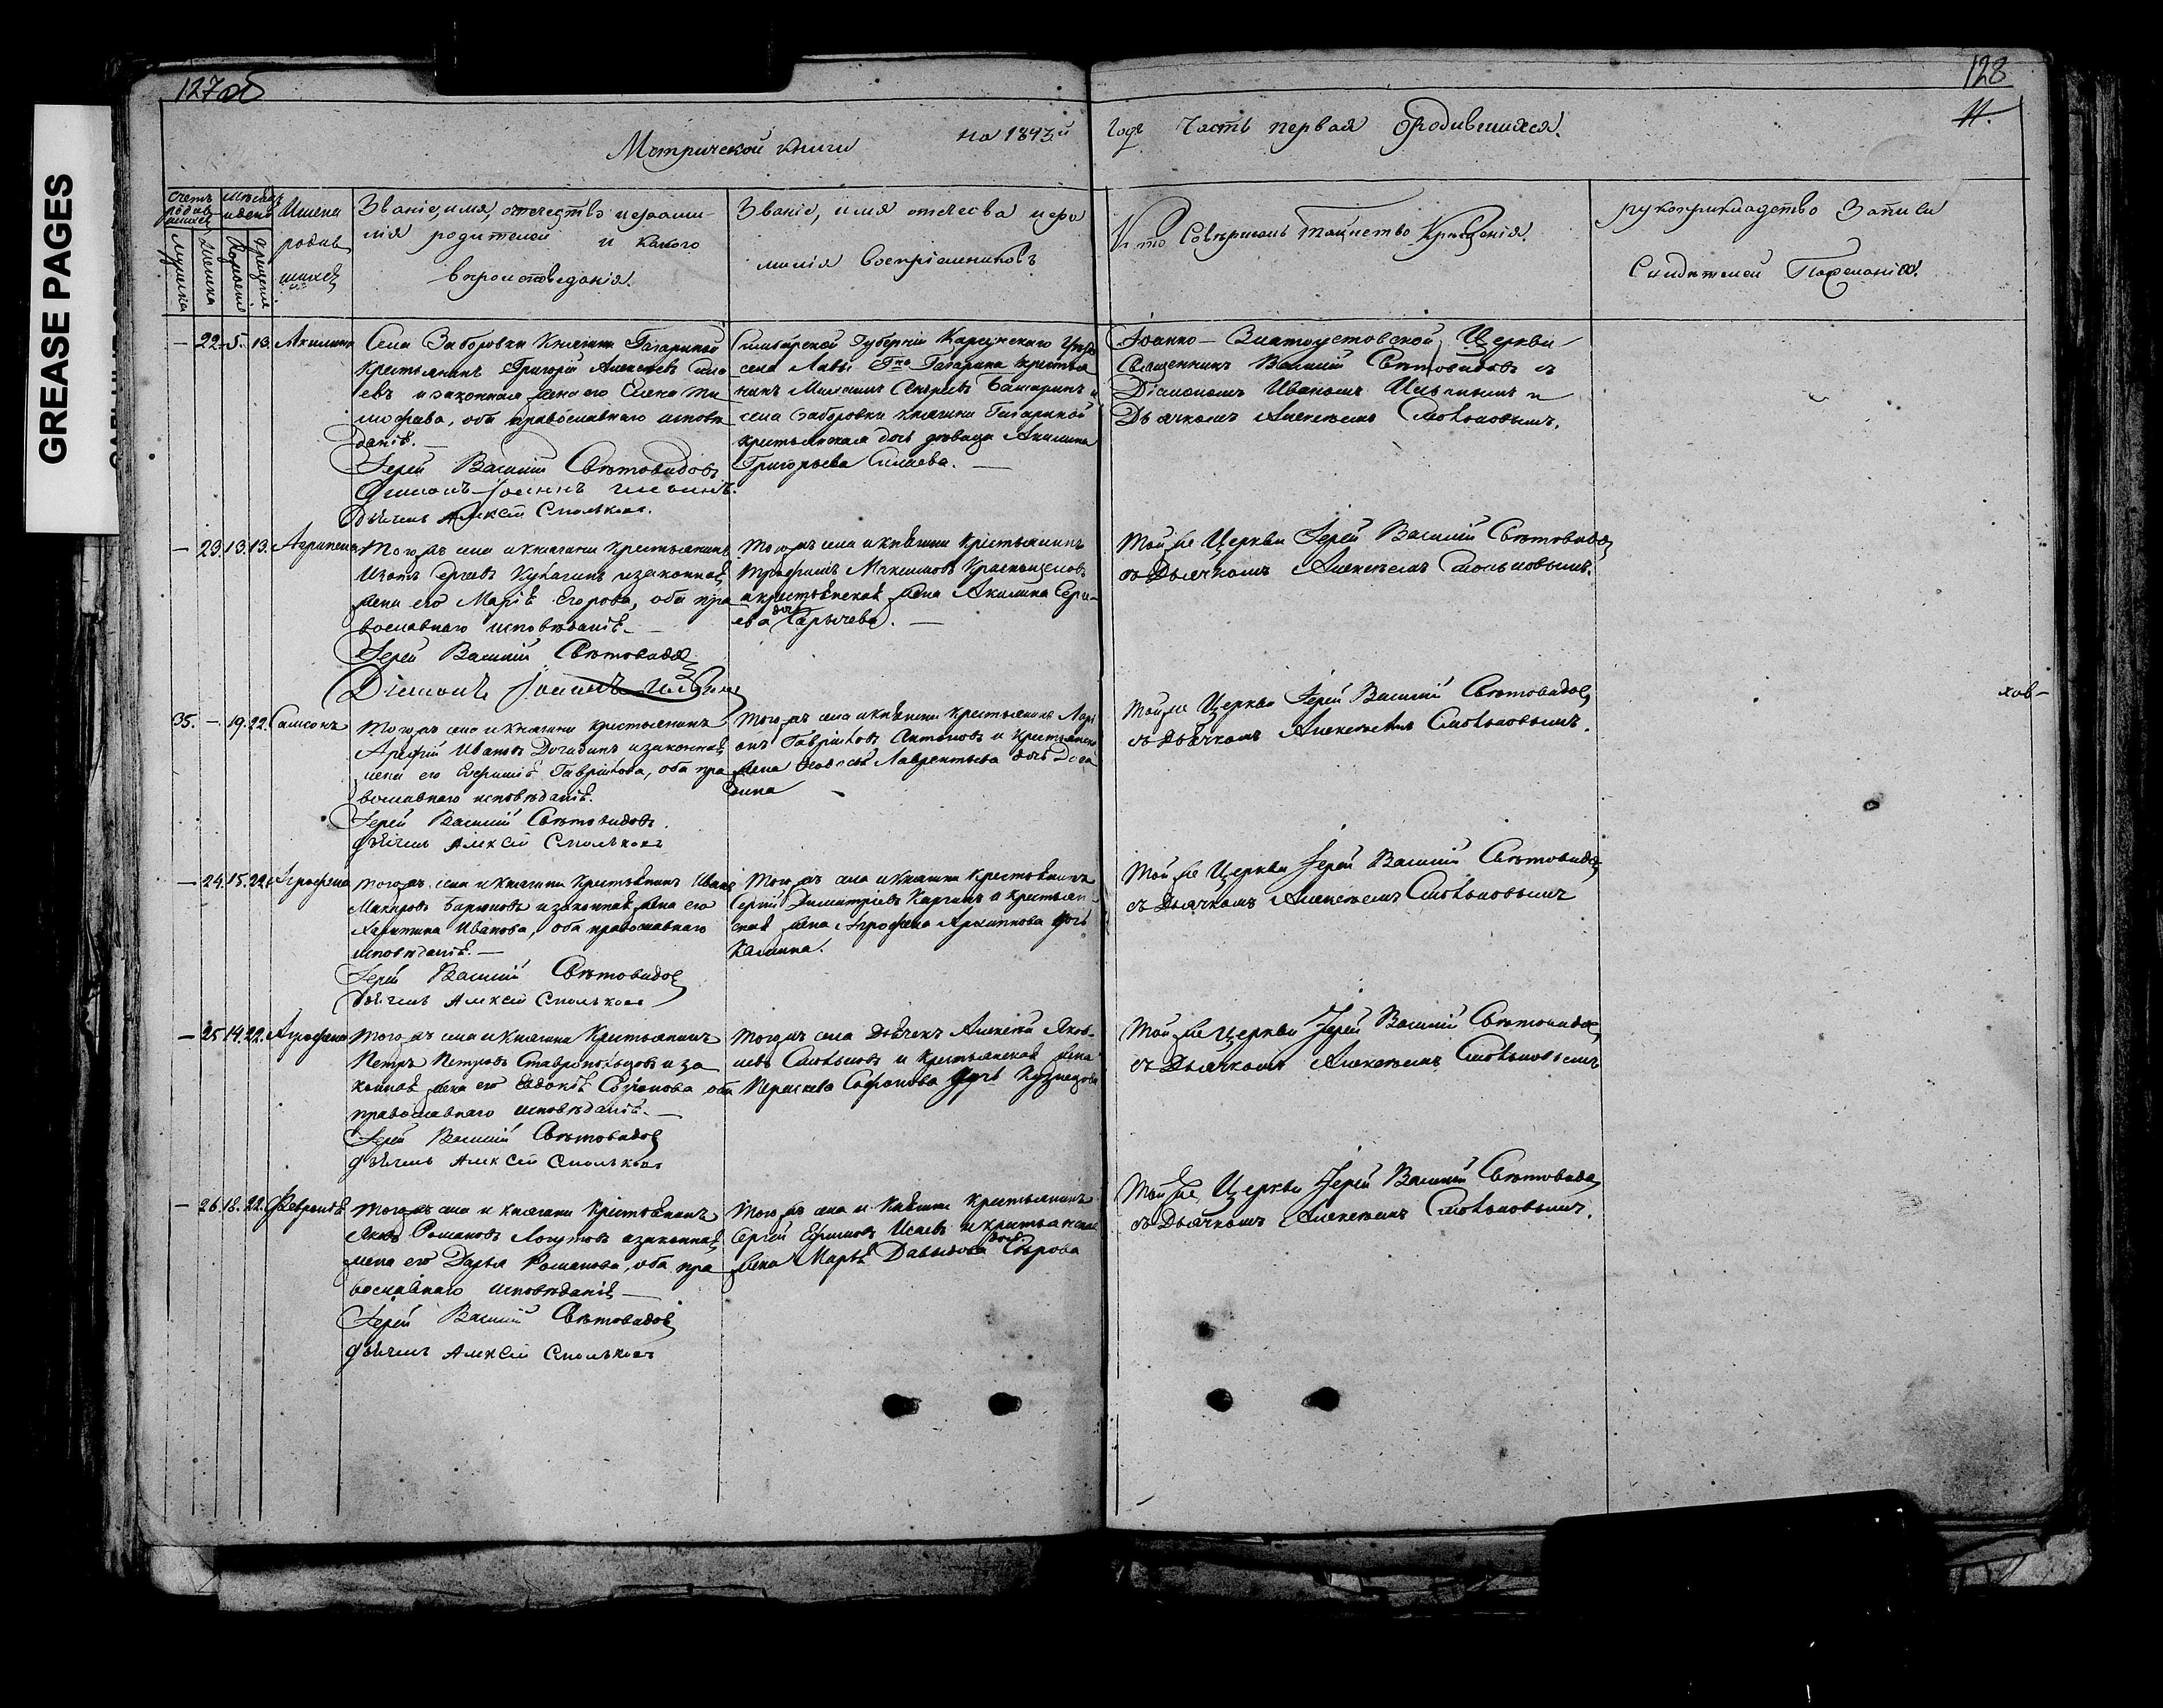 GREASE PAGES
127об
128
11.
Метрической книги на 1843й
Годъ Часть первая Ѻродившихся.
Счетъ родив
шихся
Мужска
Женска
Мѣсяцъ
и день
Рожденія
Крещенія
Имена
родив
шихся
Званіе, имя, отчество и фами
лія родителей и какого
вѣроисповѣданія.
Званіе, имя отчества и фа
милія воспріемниковъ
Кто Совершилъ таинство Крещенія.
рукоприкладство Записи
Свидѣтелей По желанію.
— 22. 5. 13. Акилина
Села Заборовки Княгини Гагариной
крестьянинъ Григорій Алексѣевъ Сила
евъ и законная жена его Елена Ти
мофѣева, оба православнаго исповѣ
данія.—
Іерей Василій Свѣтовидовъ
Діаконъ Іоаннъ Ильинъ.
дьячекъ Алексѣй Смольковъ.
Симбирской Губерніи Карсунскаго Уѣзда
села Гна Гагарина крестья
нинъ Михаилъ Андреевъ и
села Заборовки княгини Гагариной
крестьянская дочь девица Акилина
Григорьева Силаева.—
Іоанно-Златоустовской Церкви
Священникъ Василій Свѣтовидовъ съ
Діакономъ Иваномъ Ильинымъ и
Дьячкомъ Алексѣемъ Смольковымъ.
— 23. 13. 13. Агрипена
Того жъ села и княгини крестьянинъ
и законная
жена его Марія Егорова, оба пра
вославнаго исповѣданія.—
Іерей Василій Свѣтовидовъ
Діаконъ Іоаннъ Ильинъ
Того жъ села и княгини крестьянинъ
Трофимъ Максимовъ
и крестьянская жена Акилина Серге
ева дочь Карычева.—
Той же Церкви Іерей Василій Свѣтовидовъ
съ Дьячкомъ Алексѣемъ Смольковымъ.
35. — 19. 22. Самсонъ
Того жъ села и княгини крестьянинъ
Арефій Ивановъ Догадинъ и законная
жена его Евфимія Гаврилова, оба пра
вославнаго исповѣданія.
Іерей Василій Свѣтовидовъ.
дьячекъ Алексѣй Смольковъ
Того жъ села и княгини крестьянинъ Лари
онъ Гавриловъ Антоновъ и крестьянск
жена Ѳеодосья Лаврентьева дочь Дога
дина
Той же Церкви Іерей Василій Свѣтовидовъ
съ Дьячкомъ Алексѣемъ Смольковымъ.
хов—
— 24. 15. 22. Агрофена
Того жъ села и княгини крестьянинъ Иванъ
Макаровъ и законная жена его
Харитина Иванова, оба православнаго
исповѣданія.—
Іерей Василій Свѣтовидовъ
дьячекъ Алексѣй Смольковъ
Того жъ села и княгини крестьянинъ
Сергій Димитріевъ Каргинъ и крестьян
ская жена Агрофена Архиппова дочь
Калинина.
Той же Церкви Іерей Василій Свѣтовидовъ
съ Дьячкомъ Алексѣемъ Смольковымъ
— 25. 14. 22. Агрофена
Того жъ села и княгини крестьянинъ
Петръ Петровъ и за
конная жена его Евдокія Софронова оба
православнаго исповѣданія.—
Іерей Василій Свѣтовидовъ
дьячекъ Алексѣй Смольковъ
Того жъ села Дьячекъ Алексѣй Яков
левъ Смольковъ и крестьянская жена
Параскева Сафонова дочь Кузнецова
Той же церкви Іерей Василій Свѣтовидовъ
съ Дьячкомъ Алексѣемъ Смольковымъ
— 26. 18. 22. Февронія
Того жъ села и княгини крестьянинъ
Яковъ Романовъ Логутовъ и законная
жена его Дарья Романова, оба пра
вославнаго исповѣданія—
Іерей Василій Свѣтовидовъ
дьячекъ Алексѣй Смольковъ
Того жъ села и княгини крестьянинъ
Сергій Ефимовъ Исаевъ и крестьянская
жена Марья Давыдова дочь Сѣрова
Той же Церкви Іерей Василій Свѣтовидовъ
съ Дьячкомъ Алексѣемъ Смольковымъ.